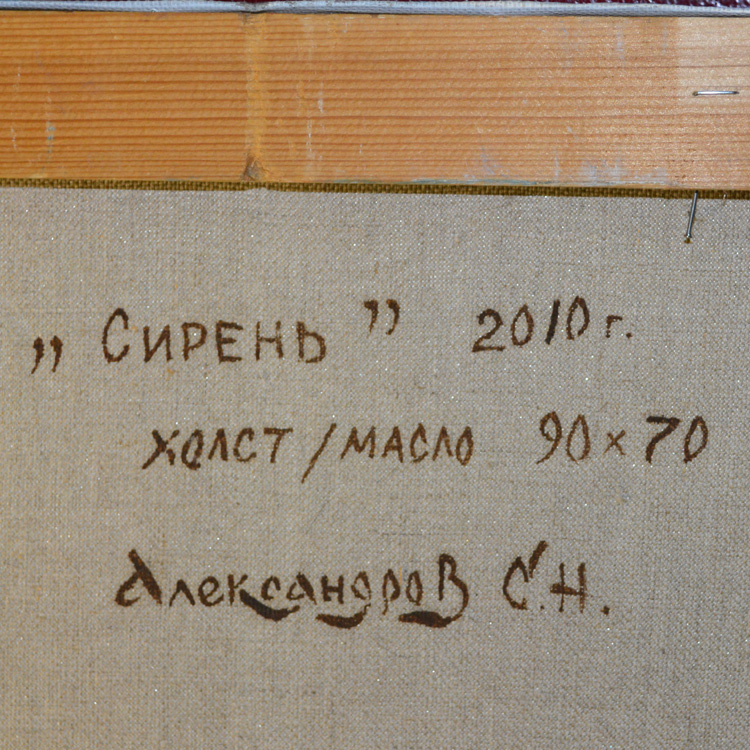 „Сирень” 2010 г.
холст/масло 90×70
Александров С.Н.